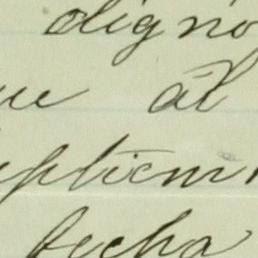 digno
ue al
eptiem
fecha